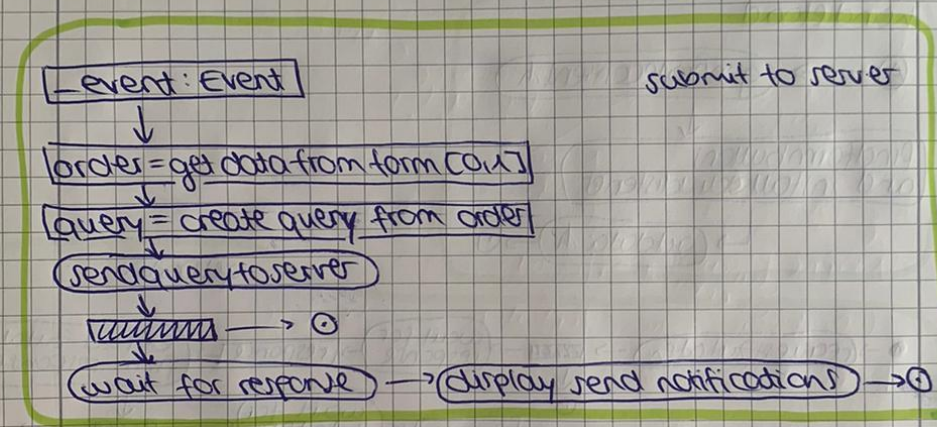 _event: Event
submit to server
order = get data from form [0,1]
query = create query from order
send query to server
wait for response
display send notifications